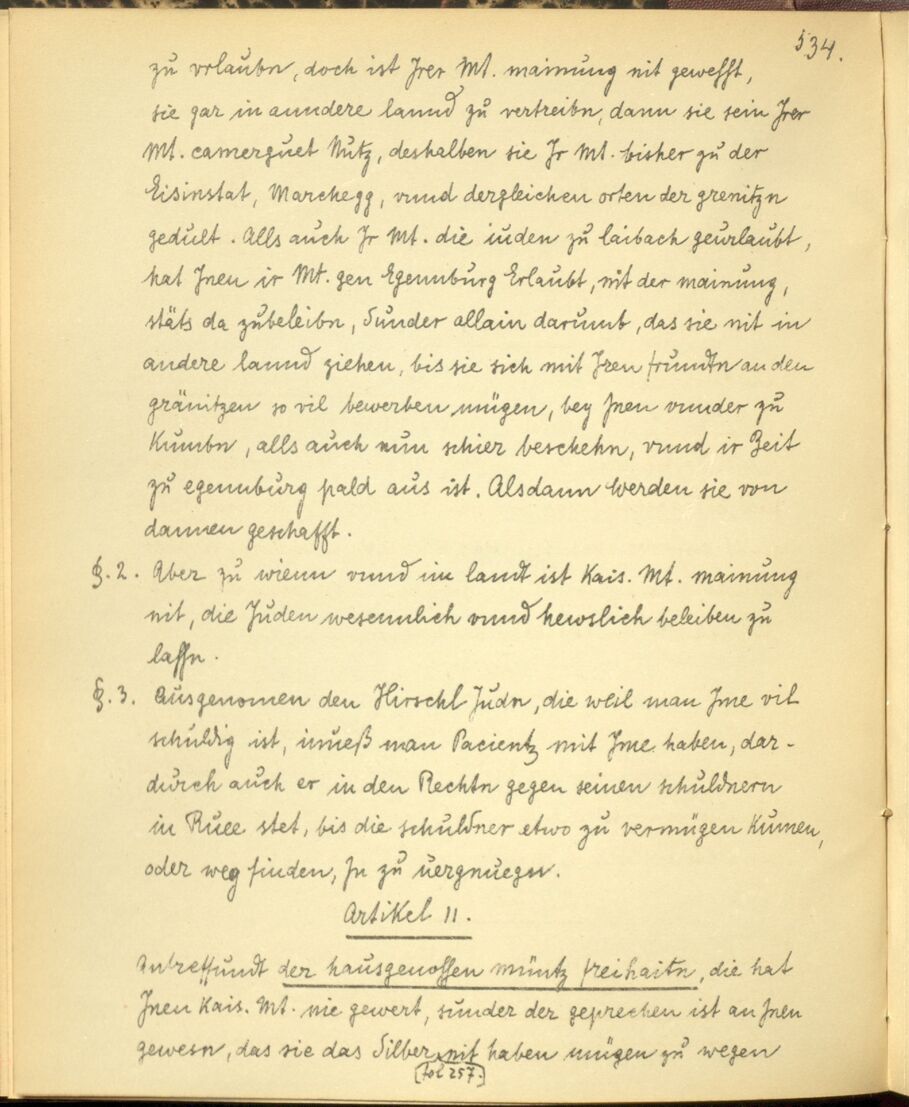 534.
zu vrlaubn, doch ist Jrer Mt. mainung nit gewesst,
sie gar in anndere lannd zu vertreibn, dann sie sein Jrer
Mt. camerguet Nutz, deshalben sie Jr Mt. bisher zu der
Eisinstat, Marchegg, vnnd dergleichen orten der grenitzn
gedult. Alls auch Jr Mt. die iuden zu laibach geurlaubt,
hat Jnen ir Mt. gen Egennburg Erlaubt, nit der mainung,
stäts da zubeleibn, Sunder allain darumb, das sie nit in
andere lannd ziehen, bis sie sich mit Jren frundtn an den
gränitzen so vil bewerben mügen, bey Jnen vnnder zu
Kumbn, alls auch nun schier beschehn, vnnd ir Zeit
zu egennburg pald aus ist. Alsdann werden sie von
dannen geschafft.
§.2. Aber zu wienn vnnd im landt ist Kais. Mt. mainung
nit, die Juden wesennlich vnnd hewslich beleiben zu
lassn.
§.3. Ausgenomen den Hirschl Judn, die weil man Jme vil
schuldig ist, mueß man Pacientz mit Jme haben, dar-
durch auch er in den Rechtn gegen seinen schuldnern
in Ruee stet, bis die schuldner etwo zu vermügen Kumen,
oder weg finden, Jn zu uergnuegn.
Artikel 11.
Antreffundt der hausgenossen müntz freihaitn, die hat
Jnen Kais. Mt. nie gewert, sunder der geprechen ist an Jnen
gewesn, das sie das Silber nit haben mügen zu wegen
[fol 257.]